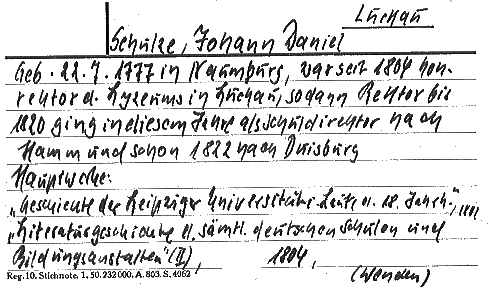 Luckau
Schulze, Johann Daniel
Geb. 22.7.1777 in Naumburg, war seit 1804 Kon-
rektor d. Lyzeums in Luckau, sodann Rektor bis
1820 ging in diesem Jahre als Schuldirektor nach
Hamm und schon 1822 nach Duisburg
Hauptwerke:
"Geschichte der Leipziger Universität i. Laufe d. 18. Jahrh.", 1802
"Literaturgeschichte d. sämtl. deutschen Schulen und
Bildungsanstalten" (II), 1804,
(Wenden)
Reg. 10. Stichnote. 1, 50. 232 000. A. 803. S. 4062